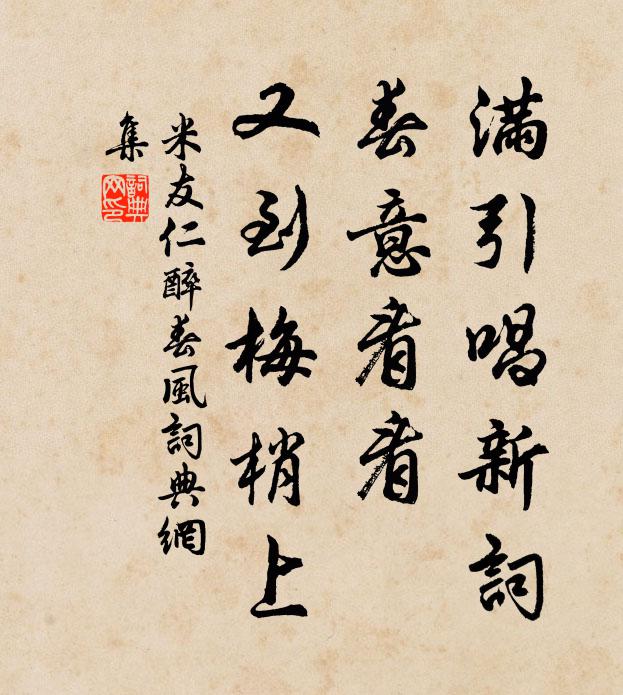 滿引唱新詞
春意看看
又到梅梢上
米友仁醉春風詞典網
集
詞典
网印